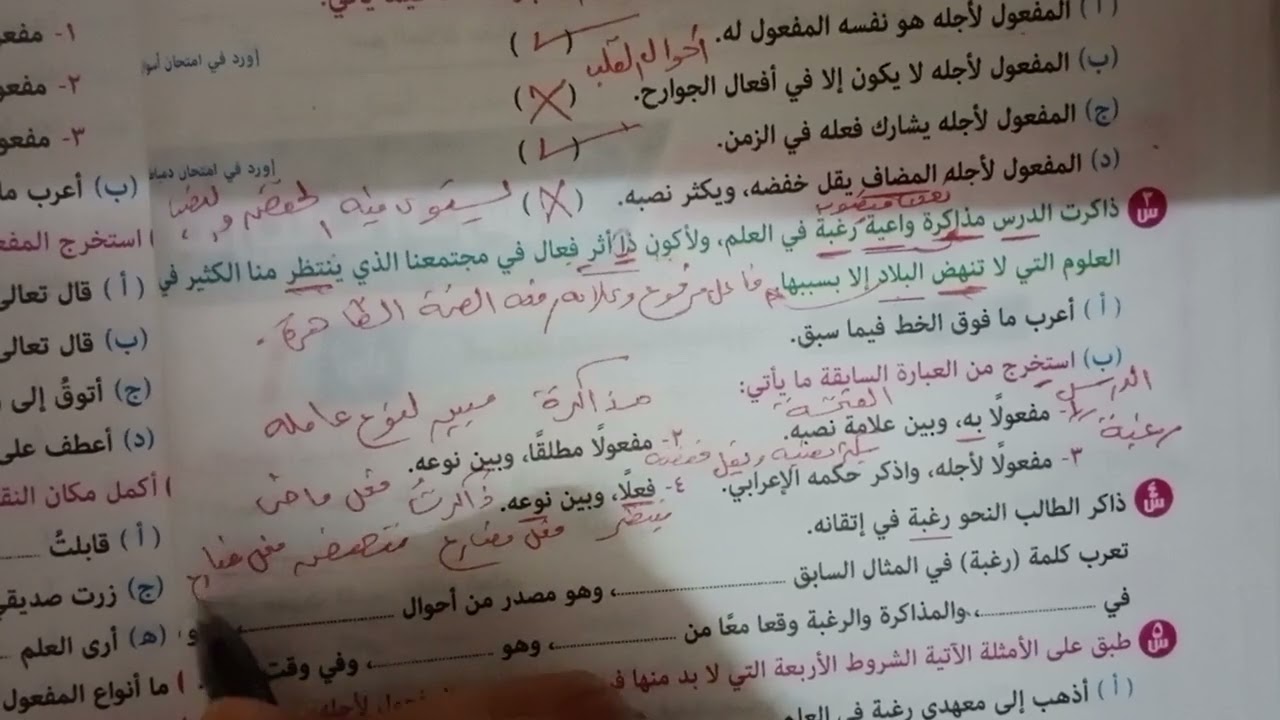 ( أ ) المفعول لأجله هو نفسه المفعول له. ( )
أحوال القلب
(ب) المفعول لأجله لا يكون إلا في أفعال الجوارح. (X)
(ج) المفعول لأجله يشارك فعله في الزمن. ( )
(د) المفعول لأجله المضاف يقل خفضه، ويكثر نصبه. (X)
س٣ ذاكرت الدرس مذاكرة واعية رغبة في العلم، ولأكون ذا أثر فعال في مجتمعنا الذي ينتظر منا الكثير في
العلوم التي لا تنهض البلاد إلا بسببها.
فاعل مرفوع وعلامة رفعه الضمة الظاهرة.
( أ ) أعرب ما فوق الخط فيما سبق.
(ب) استخرج من العبارة السابقة ما يأتي:
الدرس الفتحة
مذاكرة مبين لنوع عامله
١- مفعولًا به، وبين علامة نصبه. ٢- مفعولًا مطلقًا، وبين نوعه.
رغبة
ذاكرت فعل ماض
٣- مفعولًا لأجله، واذكر حكمه الإعرابي. ٤- فعلًا، وبين نوعه.
ينتظر فعل مضارع تنهض فعل مضارع
س٤ ذاكر الطالب النحو رغبة في إتقانه.
تعرب كلمة (رغبة) في المثال السابق ............، وهو مصدر من أحوال ............
في ............، والمذاكرة والرغبة وقعا معًا من ............، وهو ............، وفي وقت
س٥ طبق على الأمثلة الآتية الشروط الأربعة التي لا بد منها
( أ ) أذهب إلى معهدي رغبة في العلم
١- مفعو
[ورد في امتحان
٢- مفعو
٣- مفعو
[ورد في امتحان
(ب) أعرب ما
استخرج المفعـ
( أ ) قال تعالى
(ب) قال تعالى
(ج) أتوقُ إلى
(د) أعطف على
أكمل مكان النقـ
( أ ) قابلتُ ......
(ج) زرت صديقي
(هـ) أرى العلم ...
ما أنواع المفعول